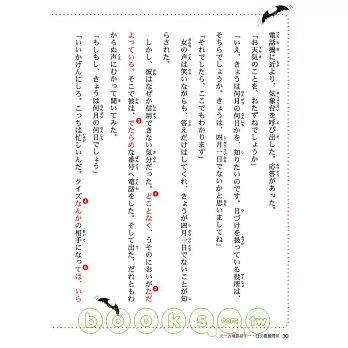 電話機に近より、気象台を呼び出した。応答があった。
「お天気のことを、おたずねでしょうか」
「いえ、きょうは何月の何日かを、知りたいのです。日づけを扱っている役所は、
そちらでしょうか。きょうは、四月一日でないかと思いましてね」
「それでしたら、ここでもわかります」
女の声は笑いながらも、答えだけはしてくれ、きょうが四月一日でないことが知
らされた。
しかし、彼はなぜか信用できない気分だった。どことなく、うそのにおいがただ
よっている。そこで彼は、でたらめな番号へ電話をした。そして出た、だれともわ
からぬ声にむかって聞いてみた。
「もしもし、きょうは何月の何日でしょう」
「いいかげんにしろ。こっちは忙しいんだ。クイズなんかの相手になっては、いら
books.com.tw
30